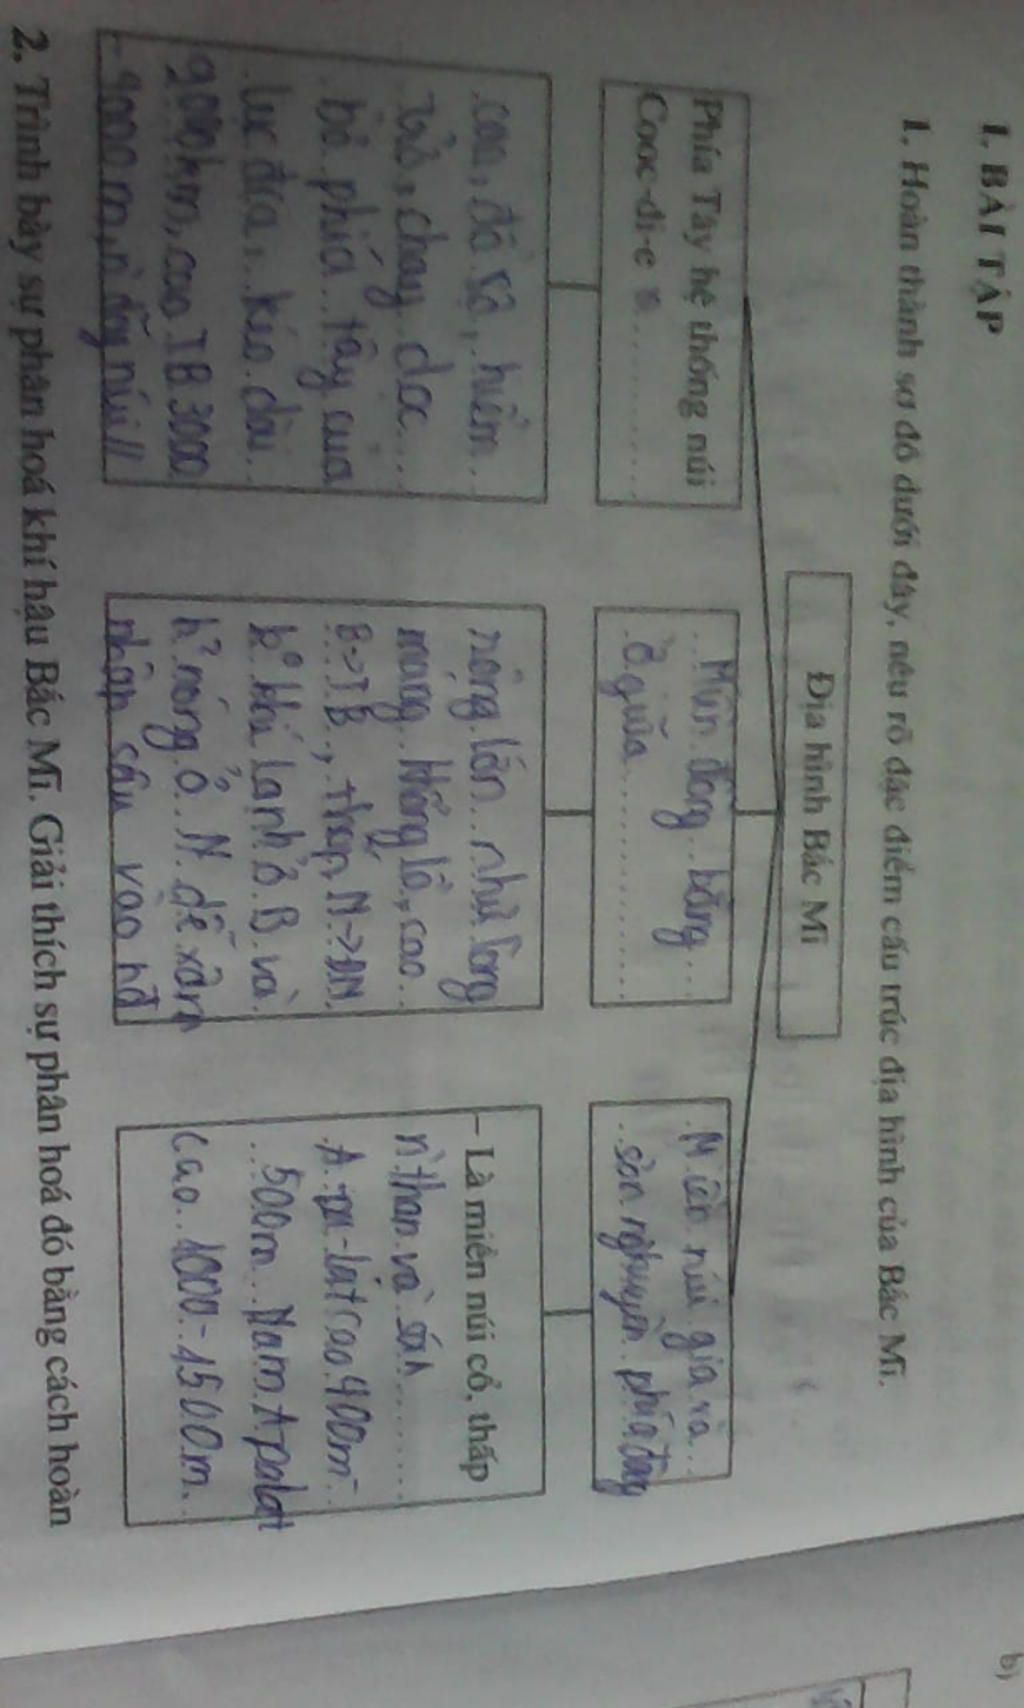 I. BÀI TẬP
1. Hoàn thành sơ đồ dưới đây, nêu rõ đặc điểm cấu trúc địa hình của Bắc Mĩ.
Địa hình Bắc Mĩ
Phía Tây hệ thống núi
Cooc-đi-e
cao, đồ sộ, hiểm
trở, chạy dọc
bờ phía tây của
lục địa, kéo dài
9000km, cao TB 3000
- 4000 m, n dãy núi //
Miền đồng bằng
ở giữa
rộng lớn như lòng
máng khổng lồ, cao
B->TB, thấp N->ĐN
k° khí lạnh ở B và
k° nóng ở N dễ xâm
nhập sâu vào nđ
Miền núi già và
sơn nguyên phía đông
- Là miền núi cổ, thấp
n than và sắt
A-pa-lat cao 400m-
500m Nam Apalat
cao 1000-1500m.
2. Trình bày sự phân hoá khí hậu Bắc Mĩ. Giải thích sự phân hoá đó bằng cách hoàn
b)